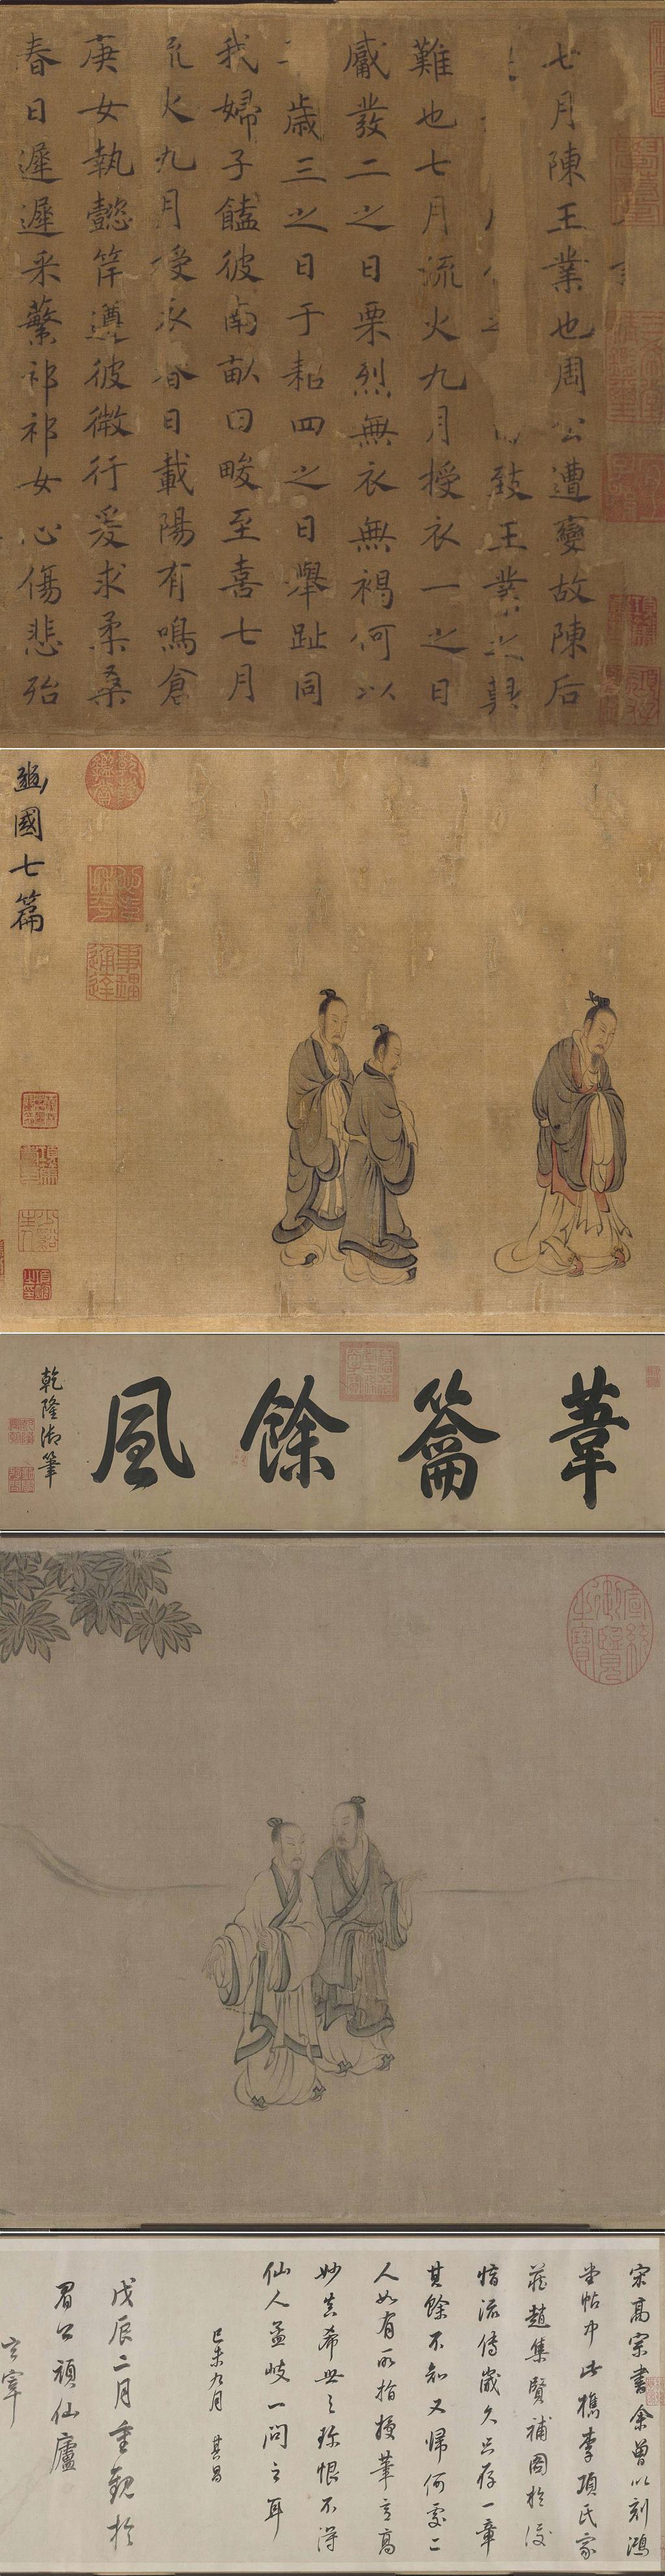 七月陳王業也周公遭變故陳后
致王業之艱
難也七月流火九月授衣一之日
觱發二之日栗烈無衣無褐何以
歲三之日于耜四之日舉趾同
我婦子饁彼南畝田畯至喜七月
流火九月授衣春日載陽有鳴倉
庚女執懿筐遵彼微行爰求柔桑
春日遲遲采蘩祁祁女心傷悲殆
乾隆鑑賞
豳國七篇
葦籥餘風
乾隆御筆
宣統御覽之寶
宋高宗書余曾以刻鴻
堂帖中此檇李項氏家
藏趙集賢補圖於後
惜流傳歲久只存一章
其餘不知又歸何處二
人如有所指授筆意高
妙真希世之珍恨不得
仙人孟岐一問之耳
己未九月 其昌
戊辰二月重觀於
眉公頑仙廬
玄宰